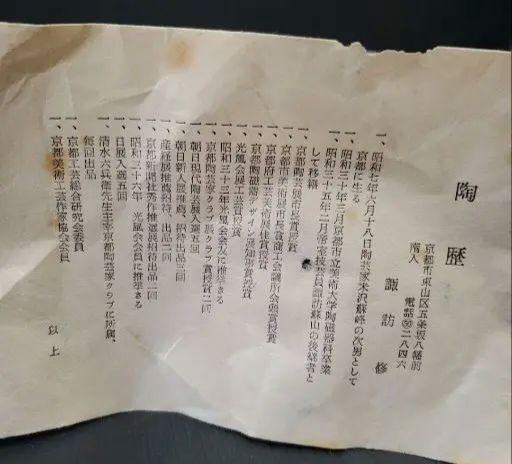 陶歴
京都市東山区五条坂八幡前
電話㊄二八四六
陶人
諏訪修
一、昭和七年六月十八日陶芸家米沢蘇峰の次男として
京都に生る
一、昭和三十年三月京都市立美術大学陶磁器科卒業
一、昭和三十五年二月帝室技芸員諏訪蘇山の後継者と
して移籍
一、京都陶芸展市長賞受賞
一、京都市美術展市長賞商工会議所会頭賞受賞
一、京都府工芸美術展推賞授賞
一、京都陶磁器デザイン展知事賞授賞
一、光風会展工芸賞授賞
一、昭和三十三年光風会会友に推挙さる
一、京都陶芸家クラブ展クラブ賞授賞二回
一、朝日現代陶芸展入選五回
一、朝日新人展推薦、招待出品三回
一、産経展推薦招待、出品二回
一、京都新聞社秀作推選展招待出品二回
一、昭和三十六年、光風会会員に推挙さる
一、日展入選五回
一、清水六兵衛先生主宰京都陶芸家クラブに所属、
毎回出品
一、京都工芸総合研究会委員
一、京都美術工芸作家協会会員
以上